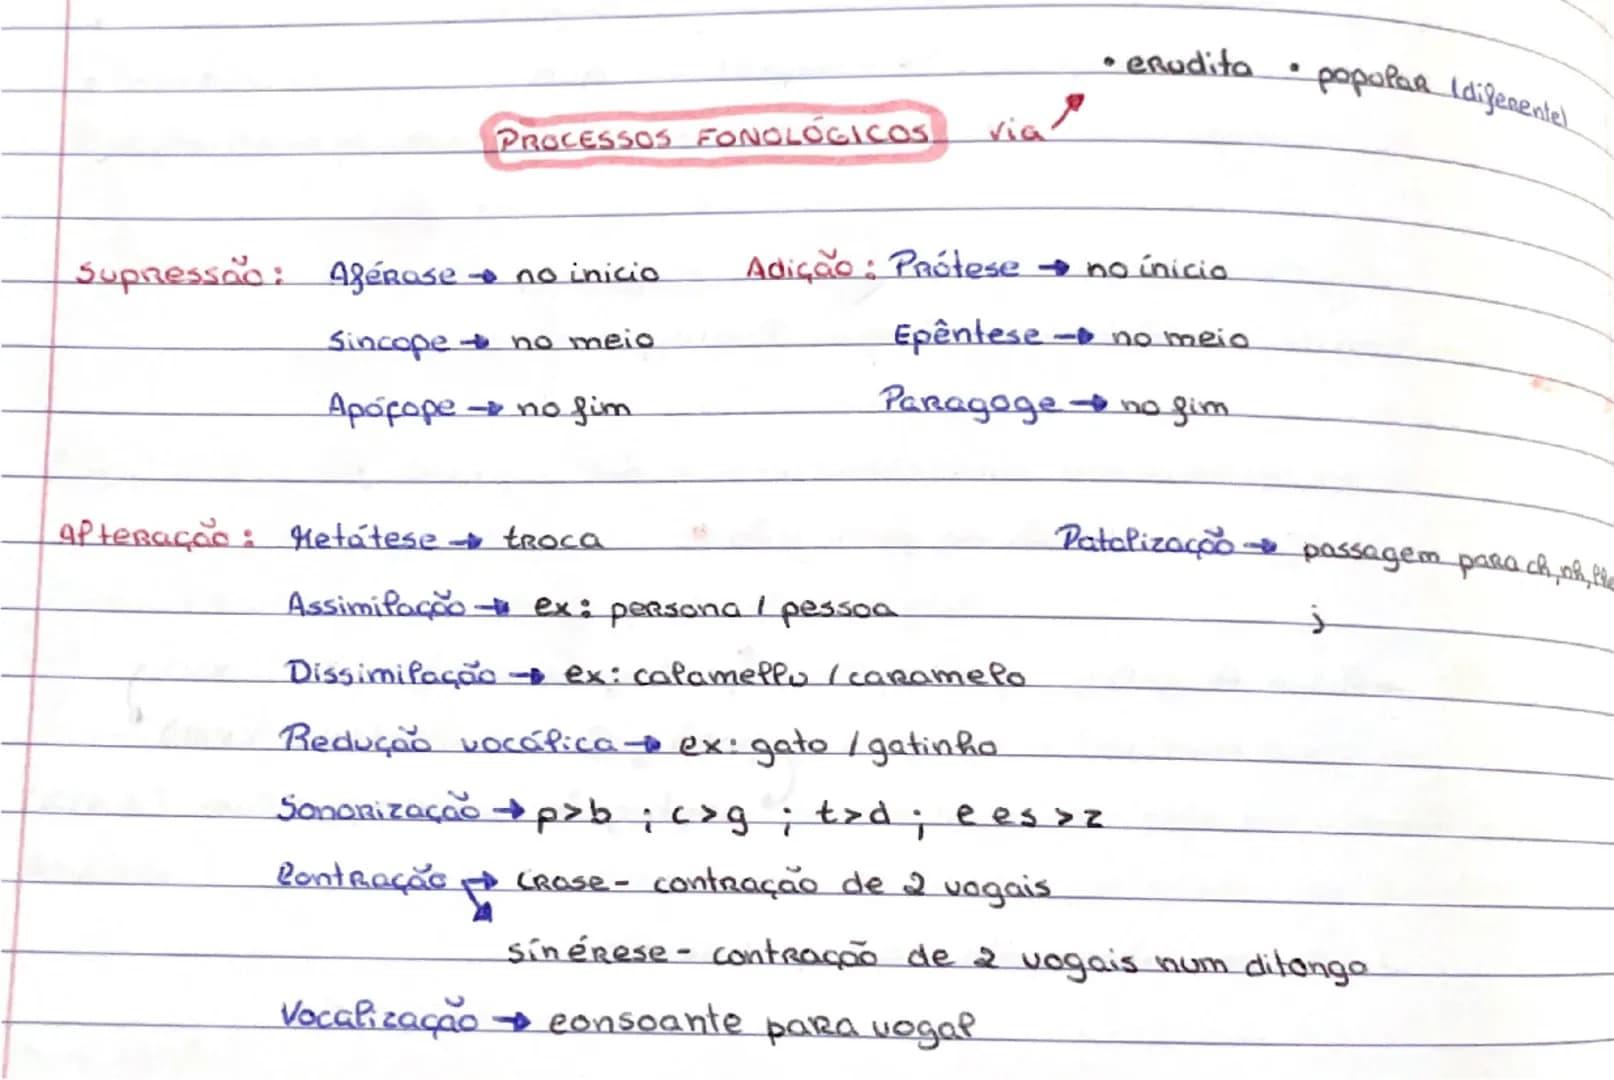 • erudita • popular (diferente)
PROCESSOS FONOLÓGICOS via
Supressão: Aférase → no inicio Adição: Prótese → no ínicio
Sincope → no meio Epêntese → no meio
Apócope → no fim Paragoge → no fim
Alteração: Metátese → troca Patalização → passagem para ch, nh,
Assimilação → ex: persona / pessoa j
Dissimilação → ex: calamellu / caramelo
Redução vocálica → ex: gato / gatinho
Sonorização → p>b ; c>g ; t>d ; e es >z
Contração → crase - contração de 2 vogais
sinérese - contração de 2 vogais num ditongo
Vocalização → consoante para vogal